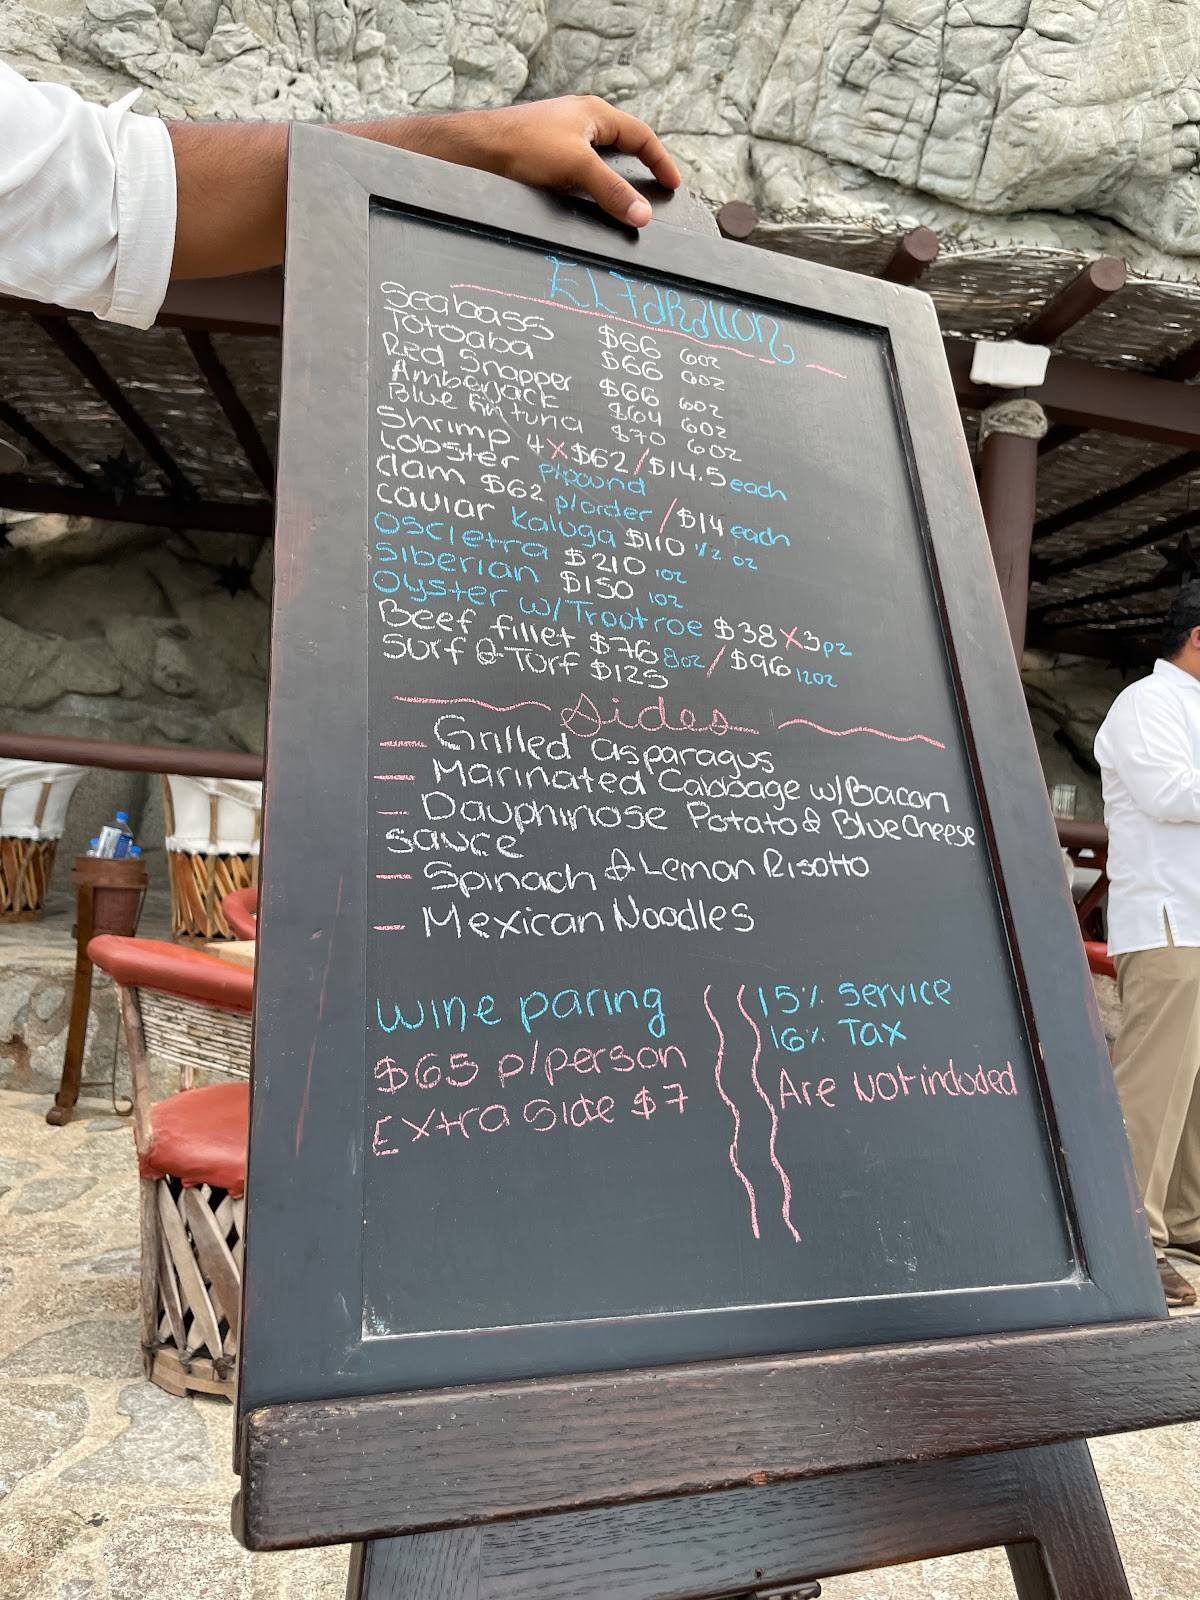 El Farallon
Seabass $66 6oz
Totoaba $66 6oz
Red Snapper $66 6oz
Amberjack $64 6oz
Blue fin tuna $70 6oz
Shrimp 4X$62/$14.5 each
Lobster p/pound
Clam $62 p/order/$14 each
Caviar Kaluga $110 1/2 oz
Oscietra $210 1oz
Siberian $150 1oz
Oyster w/Trout roe $38X3pz
Beef fillet $76 8oz/$96 12oz
Surf & Turf $125
Sides
— Grilled asparagus
— Marinated Cabbage w/Bacon
— Dauphinose Potato & Blue Cheese
sauce
— Spinach & Lemon Risotto
— Mexican Noodles
wine paring
$65 p/person
Extra Side $7
15% service
16% Tax
Are Not included